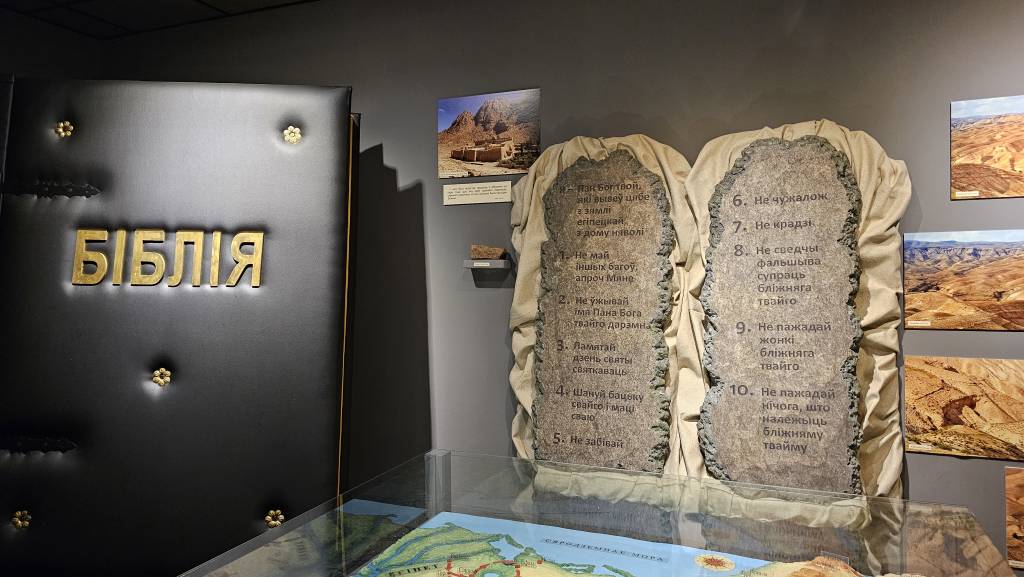 БІБЛІЯ
Пан Бог твой,
які вывеў цябе
з зямлі
егіпецкай
з дому няволі
1. Не май
іншых багоў
апроч Мяне
2. Не ўжывай
імя Пана Бога
твайго дарэмна
3. Памятай
дзень святы
святкаваць
4. Шануй бацьку
свайго і маці
сваю
5. Не забівай
6. Не чужалож
7. Не крадзі
8. Не сведчы
фальшыва
супраць
бліжняга
твайго
9. Не пажадай
жонкі
бліжняга
твайго
10. Не пажадай
нічога, што
належыць
бліжняму
твайму
ЕГІПЕТ